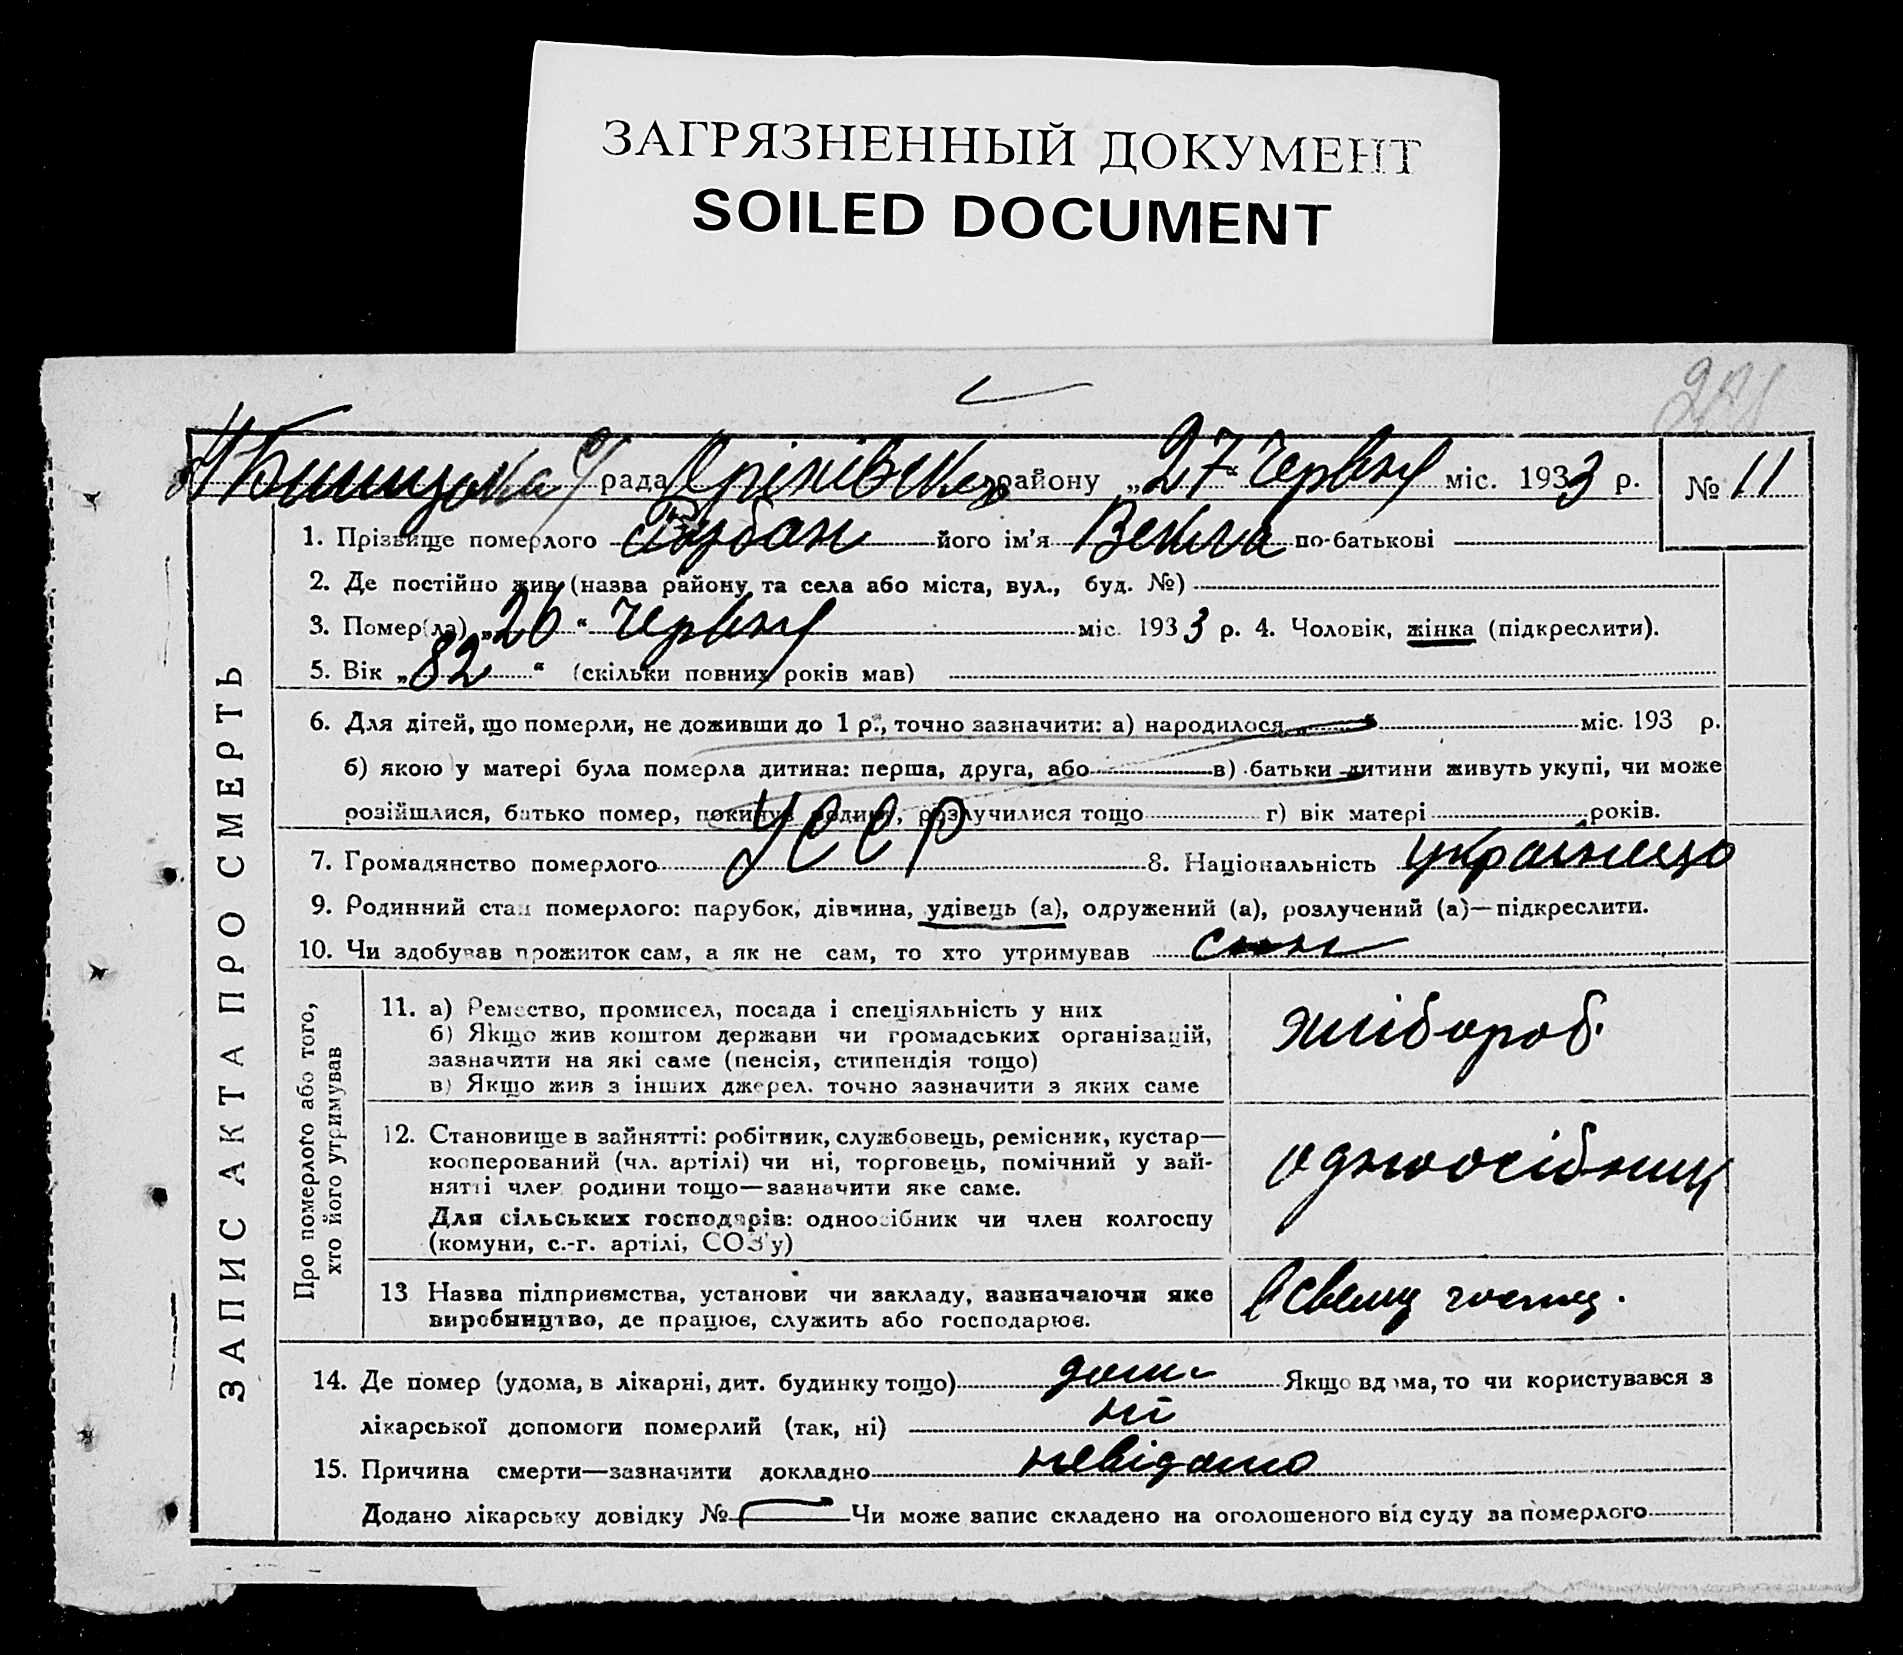 ЗАГРЯЗНЕННЫЙ ДОКУМЕНТ
SOILED DOCUMENT
рада Оріхівськ району „27“ червня міс. 1933 р. № 11
1. Прізвище померлого його ім’я по-батькові
2. Де постійно жив (назва району та села або міста, вул., буд. №)
3. Помер(ла) „26“ червня міс. 1933 р. 4. Чоловік, жінка (підкреслити).
5. Вік „82“ (скільки повних років мав)
6. Для дітей, що померли, не доживши до 1 р., точно зазначити: а) народилося „ “ міс. 193 р.
б) якою у матері була померла дитина: перша, друга, або в) батьки дитини живуть укупі, чи може
розійшлися, батько помер, покинув родину, розлучилися тощо г) вік матері років.
7. Громадянство померлого УССР 8. Національність українцю
9. Родинний стан померлого: парубок, дівчина, удівець (а), одружений (а), розлучений (а)—підкреслити.
10. Чи здобував прожиток сам, а як не сам, то хто утримував син
ЗАПИС АКТА ПРО СМЕРТЬ
Про померлого або того,
хто його утримував
11. а) Ремество, промисел, посада і спеціяльність у них
б) Якщо жив коштом держави чи громадських організацій,
зазначити на які саме (пенсія, стипендія тощо)
в) Якщо жив з інших джерел. точно зазначити з яких саме
хлібороб.
12. Становище в зайнятті: робітник, службовець, ремісник, кустар—
кооперований (чл. артілі) чи ні, торговець, помічний у зай-
нятті член родини тощо—зазначити яке саме.
Для сільських господарів: одноосібник чи член колгоспу
(комуни, с.-г. артілі, СОЗ’у)
одноосібник
13 Назва підприємства, установи чи закладу, зазначаючи яке
виробництво, де працює, служить або господарює.
в своему
14. Де помер (удома, в лікарні, дит. будинку тощо) дома Якщо вдома, то чи користувався з
лікарської допомоги померлий (так, ні) ні
15. Причина смерти—зазначити докладно невідомо
Додано лікарську довідку № Чи може запис складено на оголошеного від суду за померлого